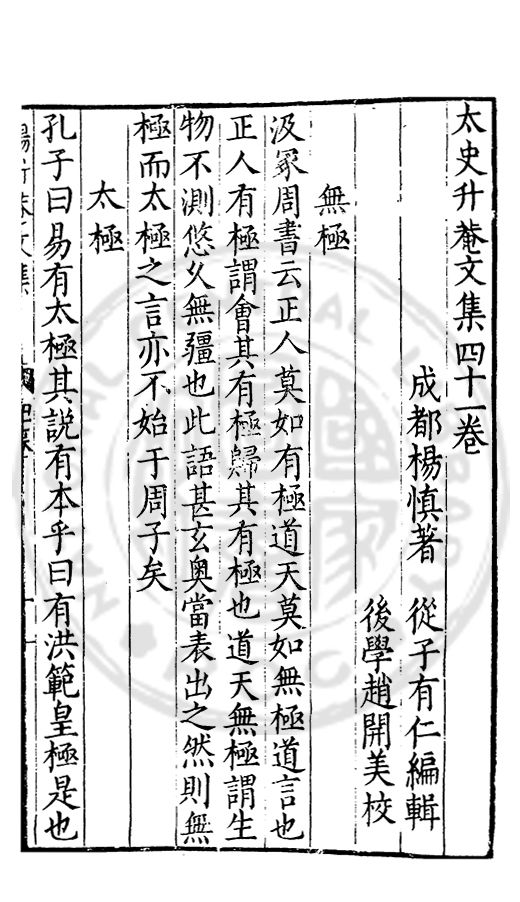 太史升菴文集四十一卷
成都楊慎著　從子有仁編輯
後學趙開美校
無極
汲冢周書云正人莫如有極道天莫如無極道言也
正人有極謂會其有極歸其有極也道天無極謂生
物不測悠久無疆也此語甚玄奧當表出之然則無
極而太極之言亦不始于周子矣
太極
孔子曰易有太極其說有本乎曰有洪範皇極是也